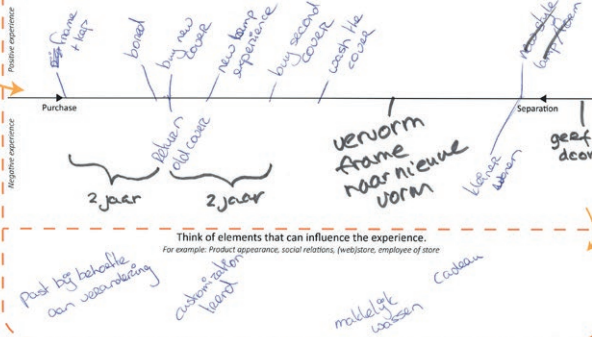 Positive experience
frame
+ kap
bored
buy new
cover
new lamp
experience
buy second
cover
wash the
cover
Purchase
Separation
Negative experience
old cover
2 jaar
2 jaar
vervorm
frame
naar nieuwe
vorm
kleiner
wonen
geef
door
Think of elements that can influence the experience.
For example: Product appearance, social relations, (web)store, employee of store
Past bij behoefte
aan verandering
customization
trend
makkelijk
wassen
Cadeau